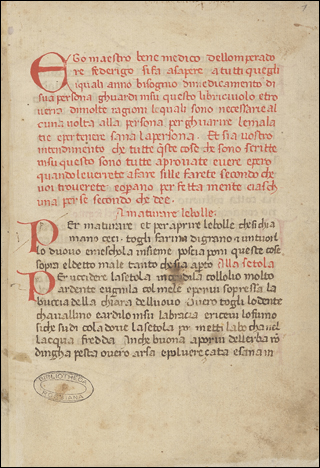 EGo maestro bene medico dellomperado
re federigo si fa asapere atutti quegli
iquali anno bisogno di medicamento di
sua persona ghuardi insu questo libricciuolo etro
verra di molte ragioni lequali sono necessarie al
cuna volta alla persona per ghuarire lemala
tie eper tenere sana lapersona. Et sia vostro
intendimento che tutte queste cose che sono scritte
insu questo sono tutte aprouate euere epero
quando leverrete afare sille farete secondo che
voi troverete eopano perfettamente ciasch
una per se secondo che dee.
Amaturare lebolle.
PEr maturare et per aprire lebolle chesichia
mano ceci. togli farina digrano
lo duovo emescola insieme poscia poni queste cose
sopra eldetto male tanto chesia apto Alla setola
PEr uccidere lasetola collolio molto
ardente eugnila col mele eponui sopressa la
buccia della chiara delluovo Overo togli lodente
chavallino eardilo insu labracia ericevi losumo
siche su di cola dove lasetola metti la bo cha nel
lacqua fredda Anche buona aporui dellerba ro
dingha pesta overo arsa epoluerezata esana in
BIBLIOTHECA